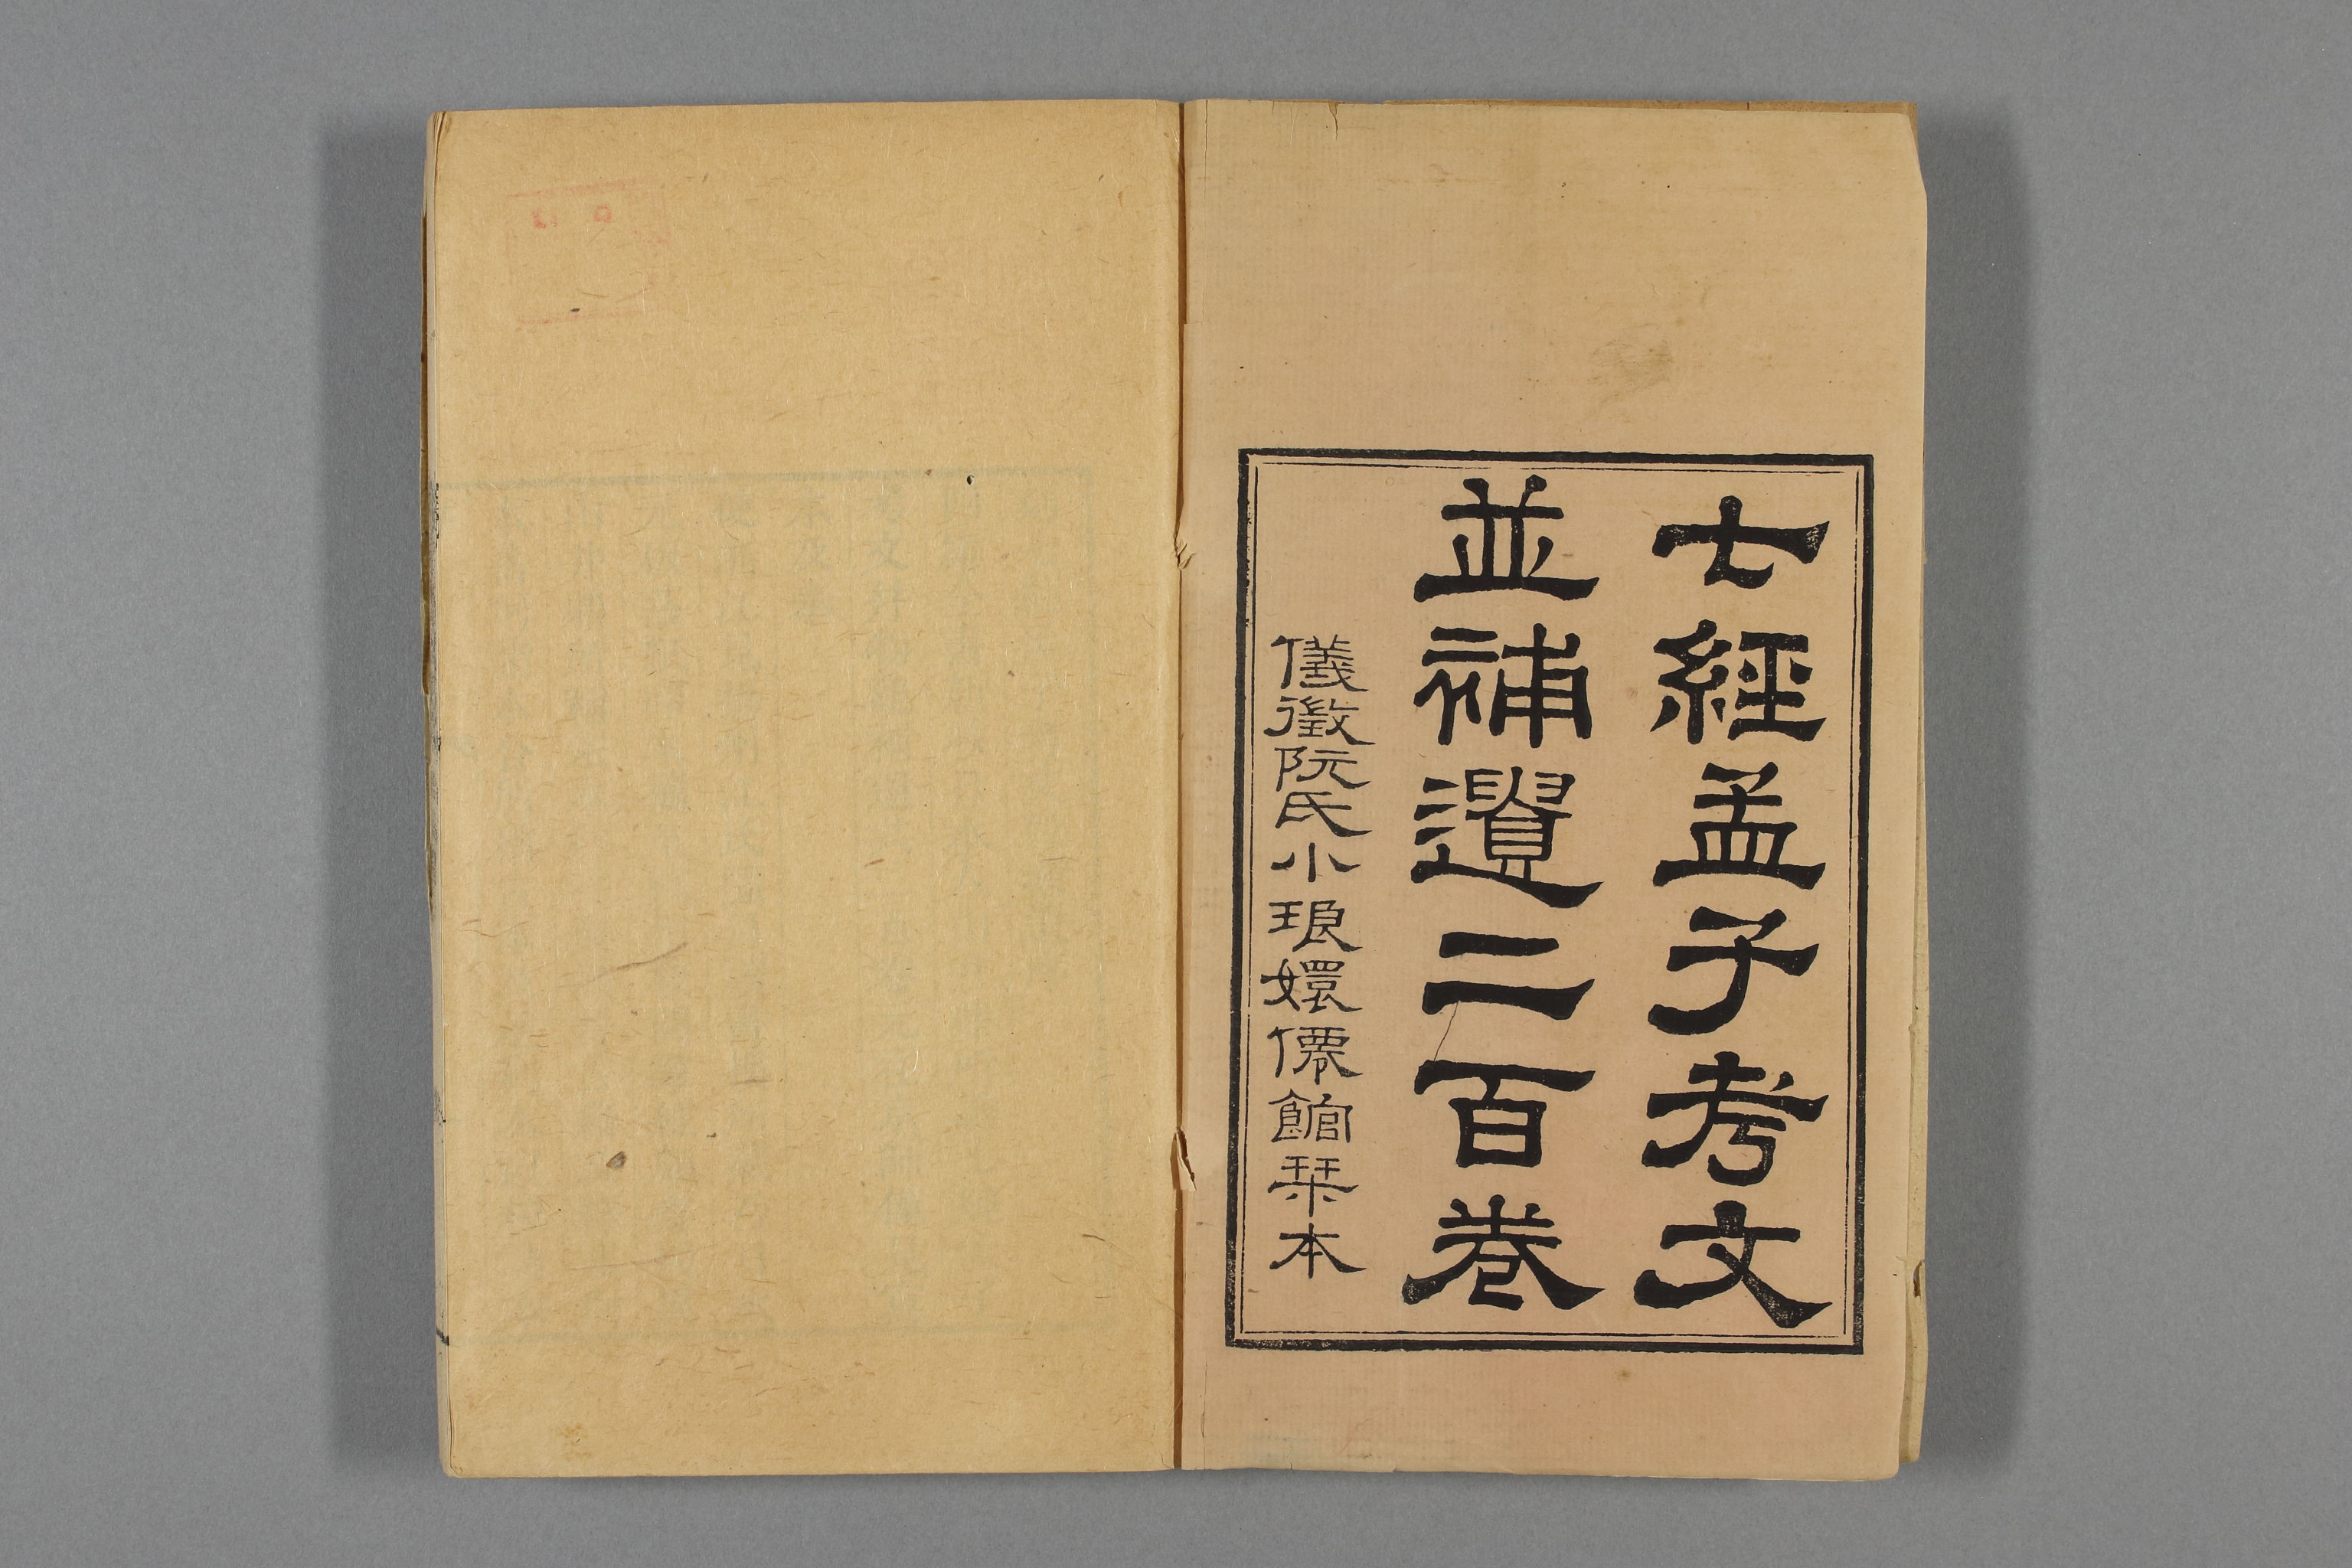 七經孟子考文
並補遺二百卷
儀徵阮氏小琅嬛僊館栞本